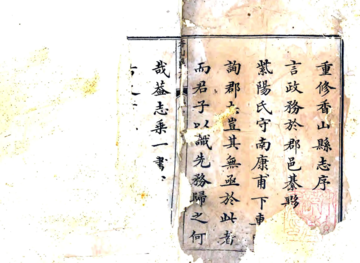 重修香山縣志序
言政務於郡邑綦
紫陽氏守南康甫下車
詢郡 豈其無亟於此者
而君子以識先務歸之何
哉葢志乘一書